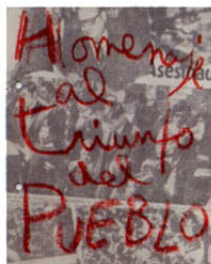 Homenaje
al
triunfo
del
PUEBLO